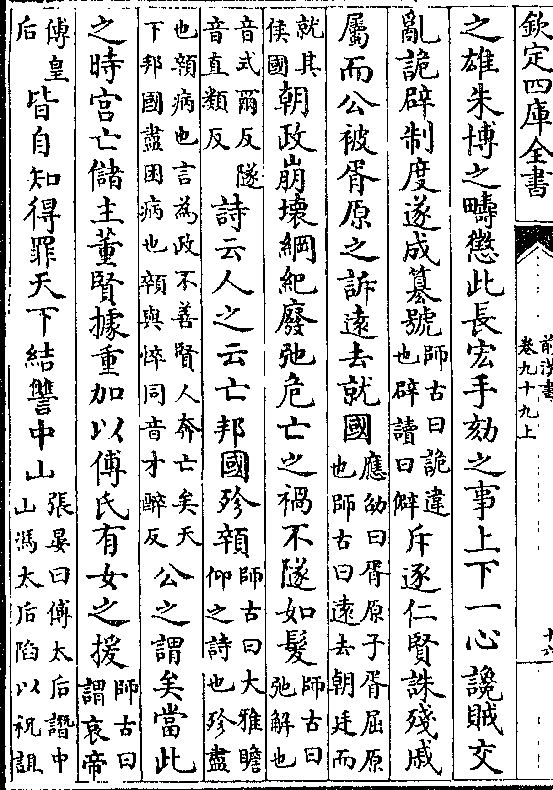 欽定四庫全書
前漢書
卷九十九上
十六
之雄朱博之疇懲此長宏手劾之事上下一心讒賊交
亂詭辟制度遂成簒號師古曰詭違也辟讀曰僻斥逐仁賢誅殘戚
屬而公被胥原之訴遠去就國應劭曰胥原子胥屈原也師古曰遠去朝廷而
就其侯國朝政崩壞綱紀廢弛危亡之禍不隧如髮師古曰弛解也
音式爾反隧音直類反詩云人之云亡邦國殄顇師古曰大雅瞻仰之詩也殄盡
也顇病也言為政不善賢人奔亡矣天下邦國盡困病也顇與悴同音才醉反公之謂矣當此
之時宮亡儲主董賢據重加以傅氏有女之援師古曰謂哀帝
傅皇后皆自知得罪天下結讐中山張晏曰傅太后譖中山馮太后陷以祝詛